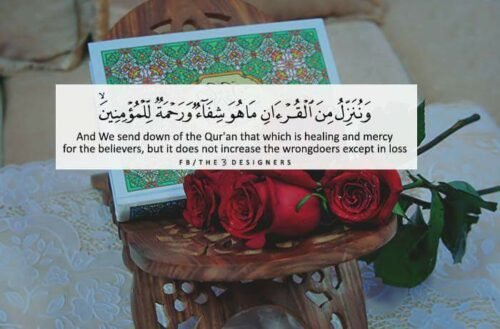 وَنُنَزِّلُ مِنَ ٱلْقُرْءَانِ مَا هُوَ شِفَآءٌ وَرَحْمَةٌ لِّلْمُؤْمِنِينَ ۙ
And We send down of the Qur'an that which is healing and mercy
for the believers, but it does not increase the wrongdoers except in loss
FB/THE 3 DESIGNERS